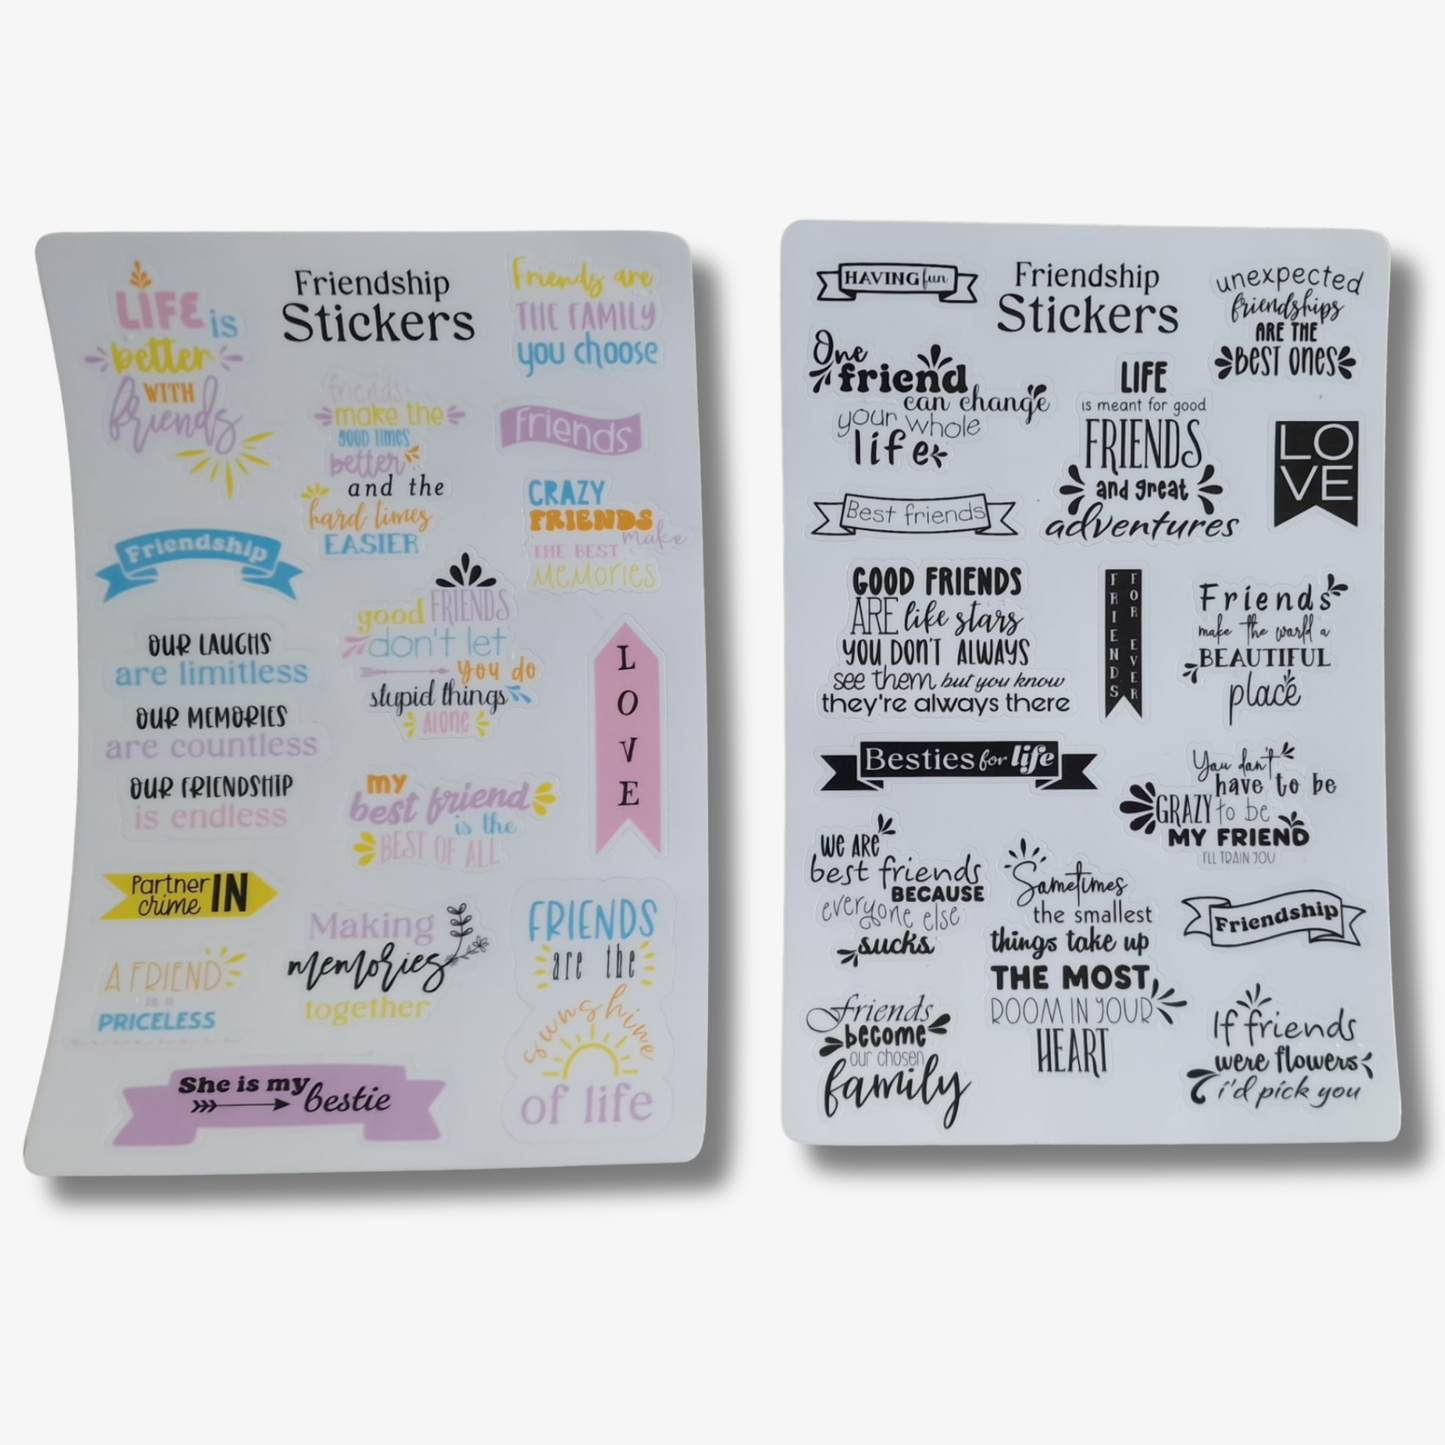 Friendship
Stickers
LIFE is
better
WITH
friends
Friends are
THE FAMILY
you choose
friends
make the
good times
better
and the
hard times
EASIER
Friends
CRAZY
FRIENDS
make
THE BEST
MeMories
Friendship
good FRIENDS
don't let
you do
stupid things
ALONE
OUR LAUGHS
are limitless
OUR MEMORIES
are countless
OUR FRIENDSHIP
is endless
L
O
V
E
my
best friend
is the
BEST OF ALL
Partner IN
crime
Making
memories
together
FRIENDS
are the
sunshine
of life
A FRIEND
is a
PRICELESS
She is my
bestie
Friendship
Stickers
HAVING fun
unexpected
friendships
ARE THE
BEST ONES
One
friend
can change
your whole
life
LIFE
is meant for good
FRIENDS
and great
adventures
LO
VE
Best friends
GOOD FRIENDS
ARE like stars
YOU DON'T ALWAYS
see them but you know
they're always there
FRIENDS
FOR EVER
Friends
make the world a
BEAUTIFUL
place
Besties for life
You don't
have to be
GRAZY to be
MY FRIEND
I'LL TRAIN YOU
WE ARE
best friends
BECAUSE
everyone else
sucks
Sometimes
the smallest
things take up
THE MOST
ROOM IN YOUR
HEART
Friendship
friends
become
our chosen
family
If friends
were flowers
i'd pick you